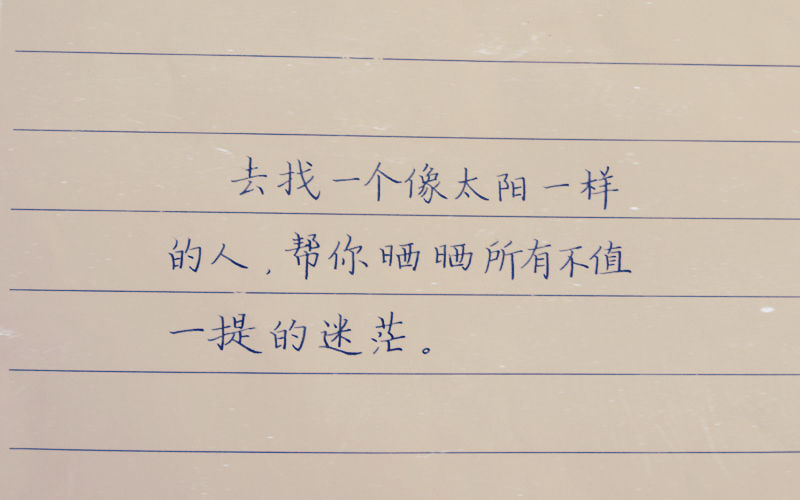 去找一个像太阳一样
的人，帮你晒晒所有不值
一提的迷茫。